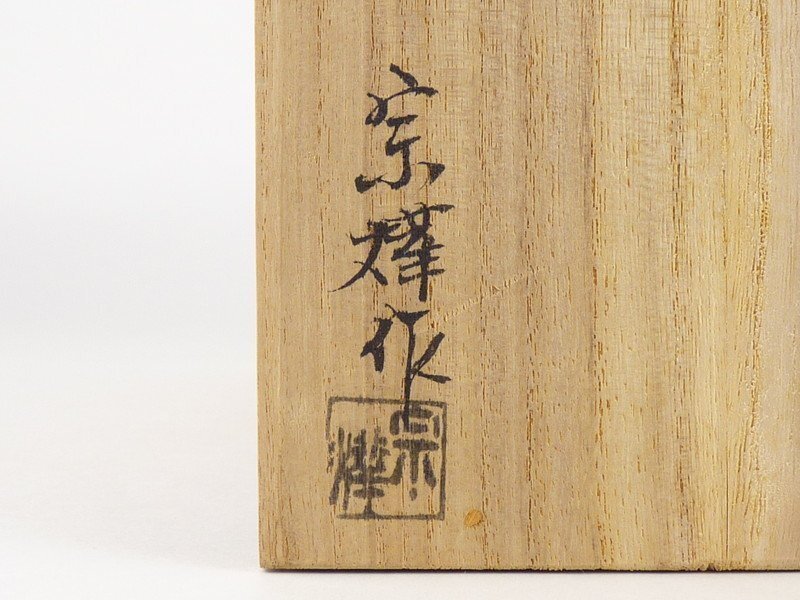 宗燁作
宗燁